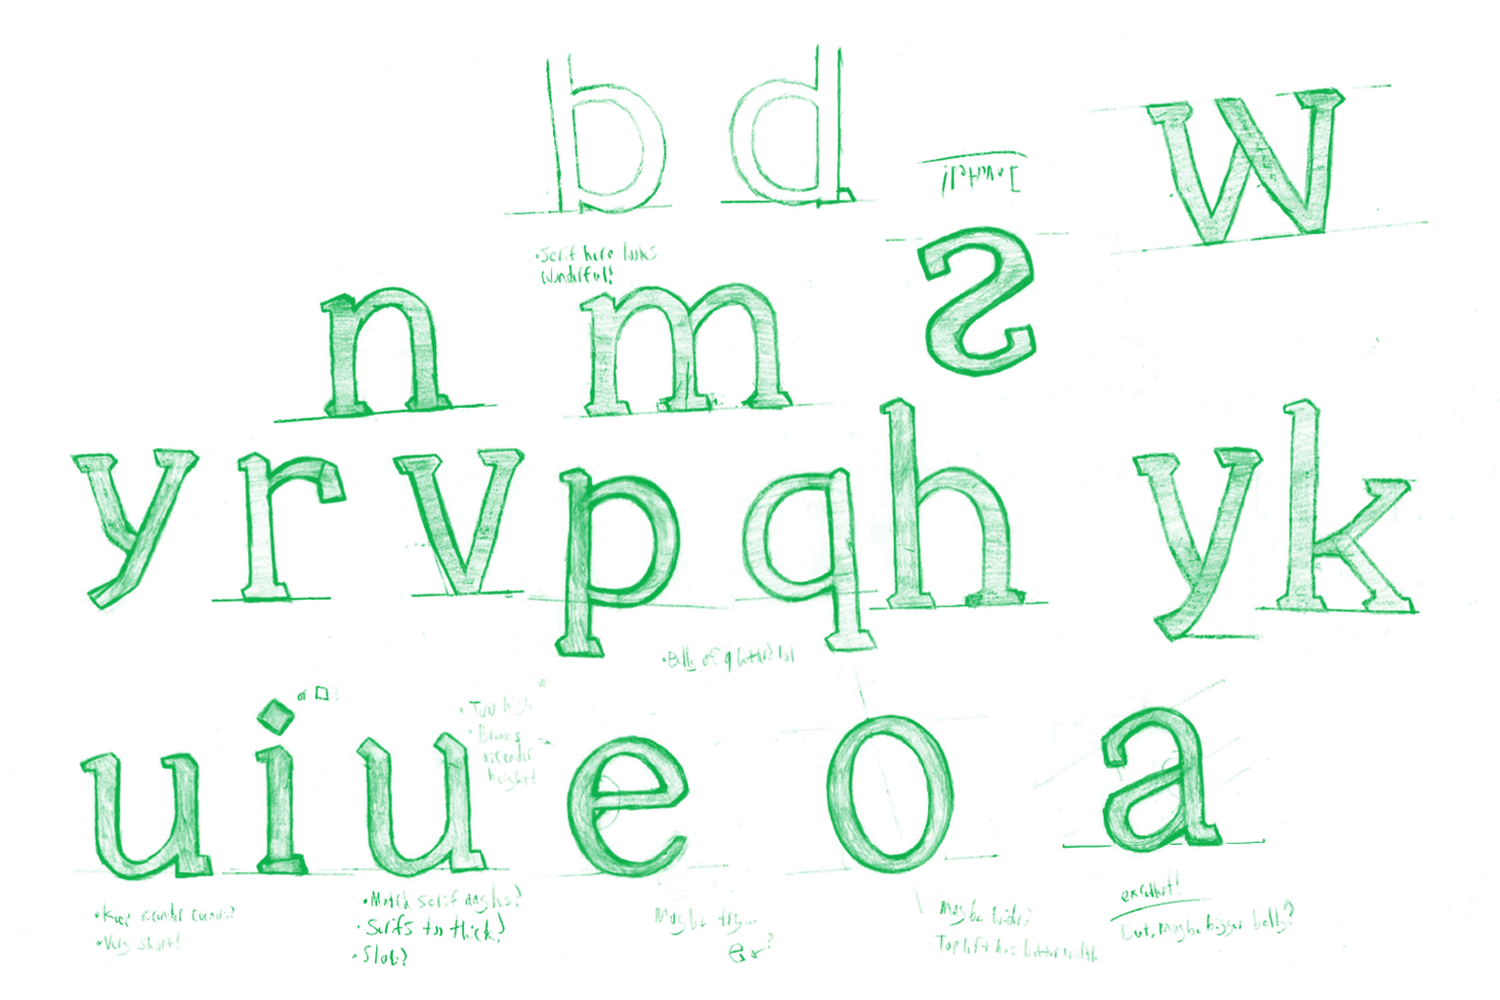 b d w
Inverted!
• Serif here looks
Wonderful!
n m s
y r v p q h y k
• Belly of q better? lol
or □?
• Too high
• Breaks
ascender
height!
u i u e o a
• Keep ascender curves?
• Very short!
• Match serif angles?
• Serifs too thick?
• Slab?
Maybe try...
e or ?
Maybe wider?
Top left has better width
excellent!
But, Maybe bigger belly?